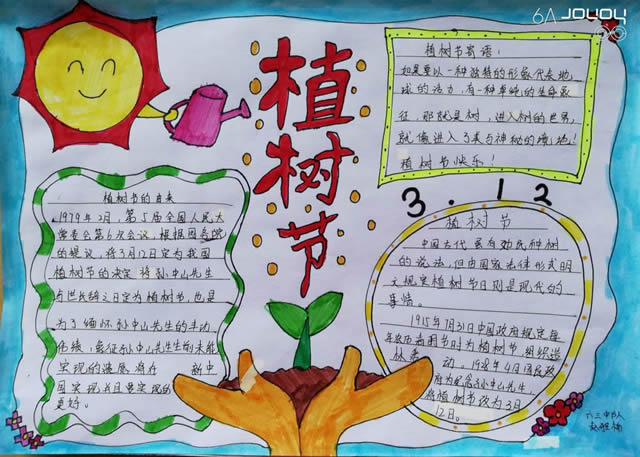 植树节
植树节寄语：
如果要以一种独特的形象代表地
球的活力，有一种单纯的生命象
征，那就是树，进入树的世界，
就像进入了美与神秘的境地！
植树节快乐！
3.12
植树节的由来
1979年2月，第5届全国人民大
常委会第6次会议，根据国务院
的提议，将3月12日定为我国
植树节的决定 将孙中山先生
与世长辞之日定为植树节，也是
为了缅怀孙中山先生的丰功
伟绩，象征孙中山先生生前未能
实现的遗愿 将在 新中
国实现并且要实现的
更好。
植树节
中国古代虽有劝民种树
的说法，但由国家法律形式明
文规定植树节日则是现代的
事情。
1915年7月31日中国政府规定每
年农历清明节时为植树节 组织造
林 动。1928年4月国民政
府为纪念孙中山先生
将植树节改为3月
12日。
六三中队